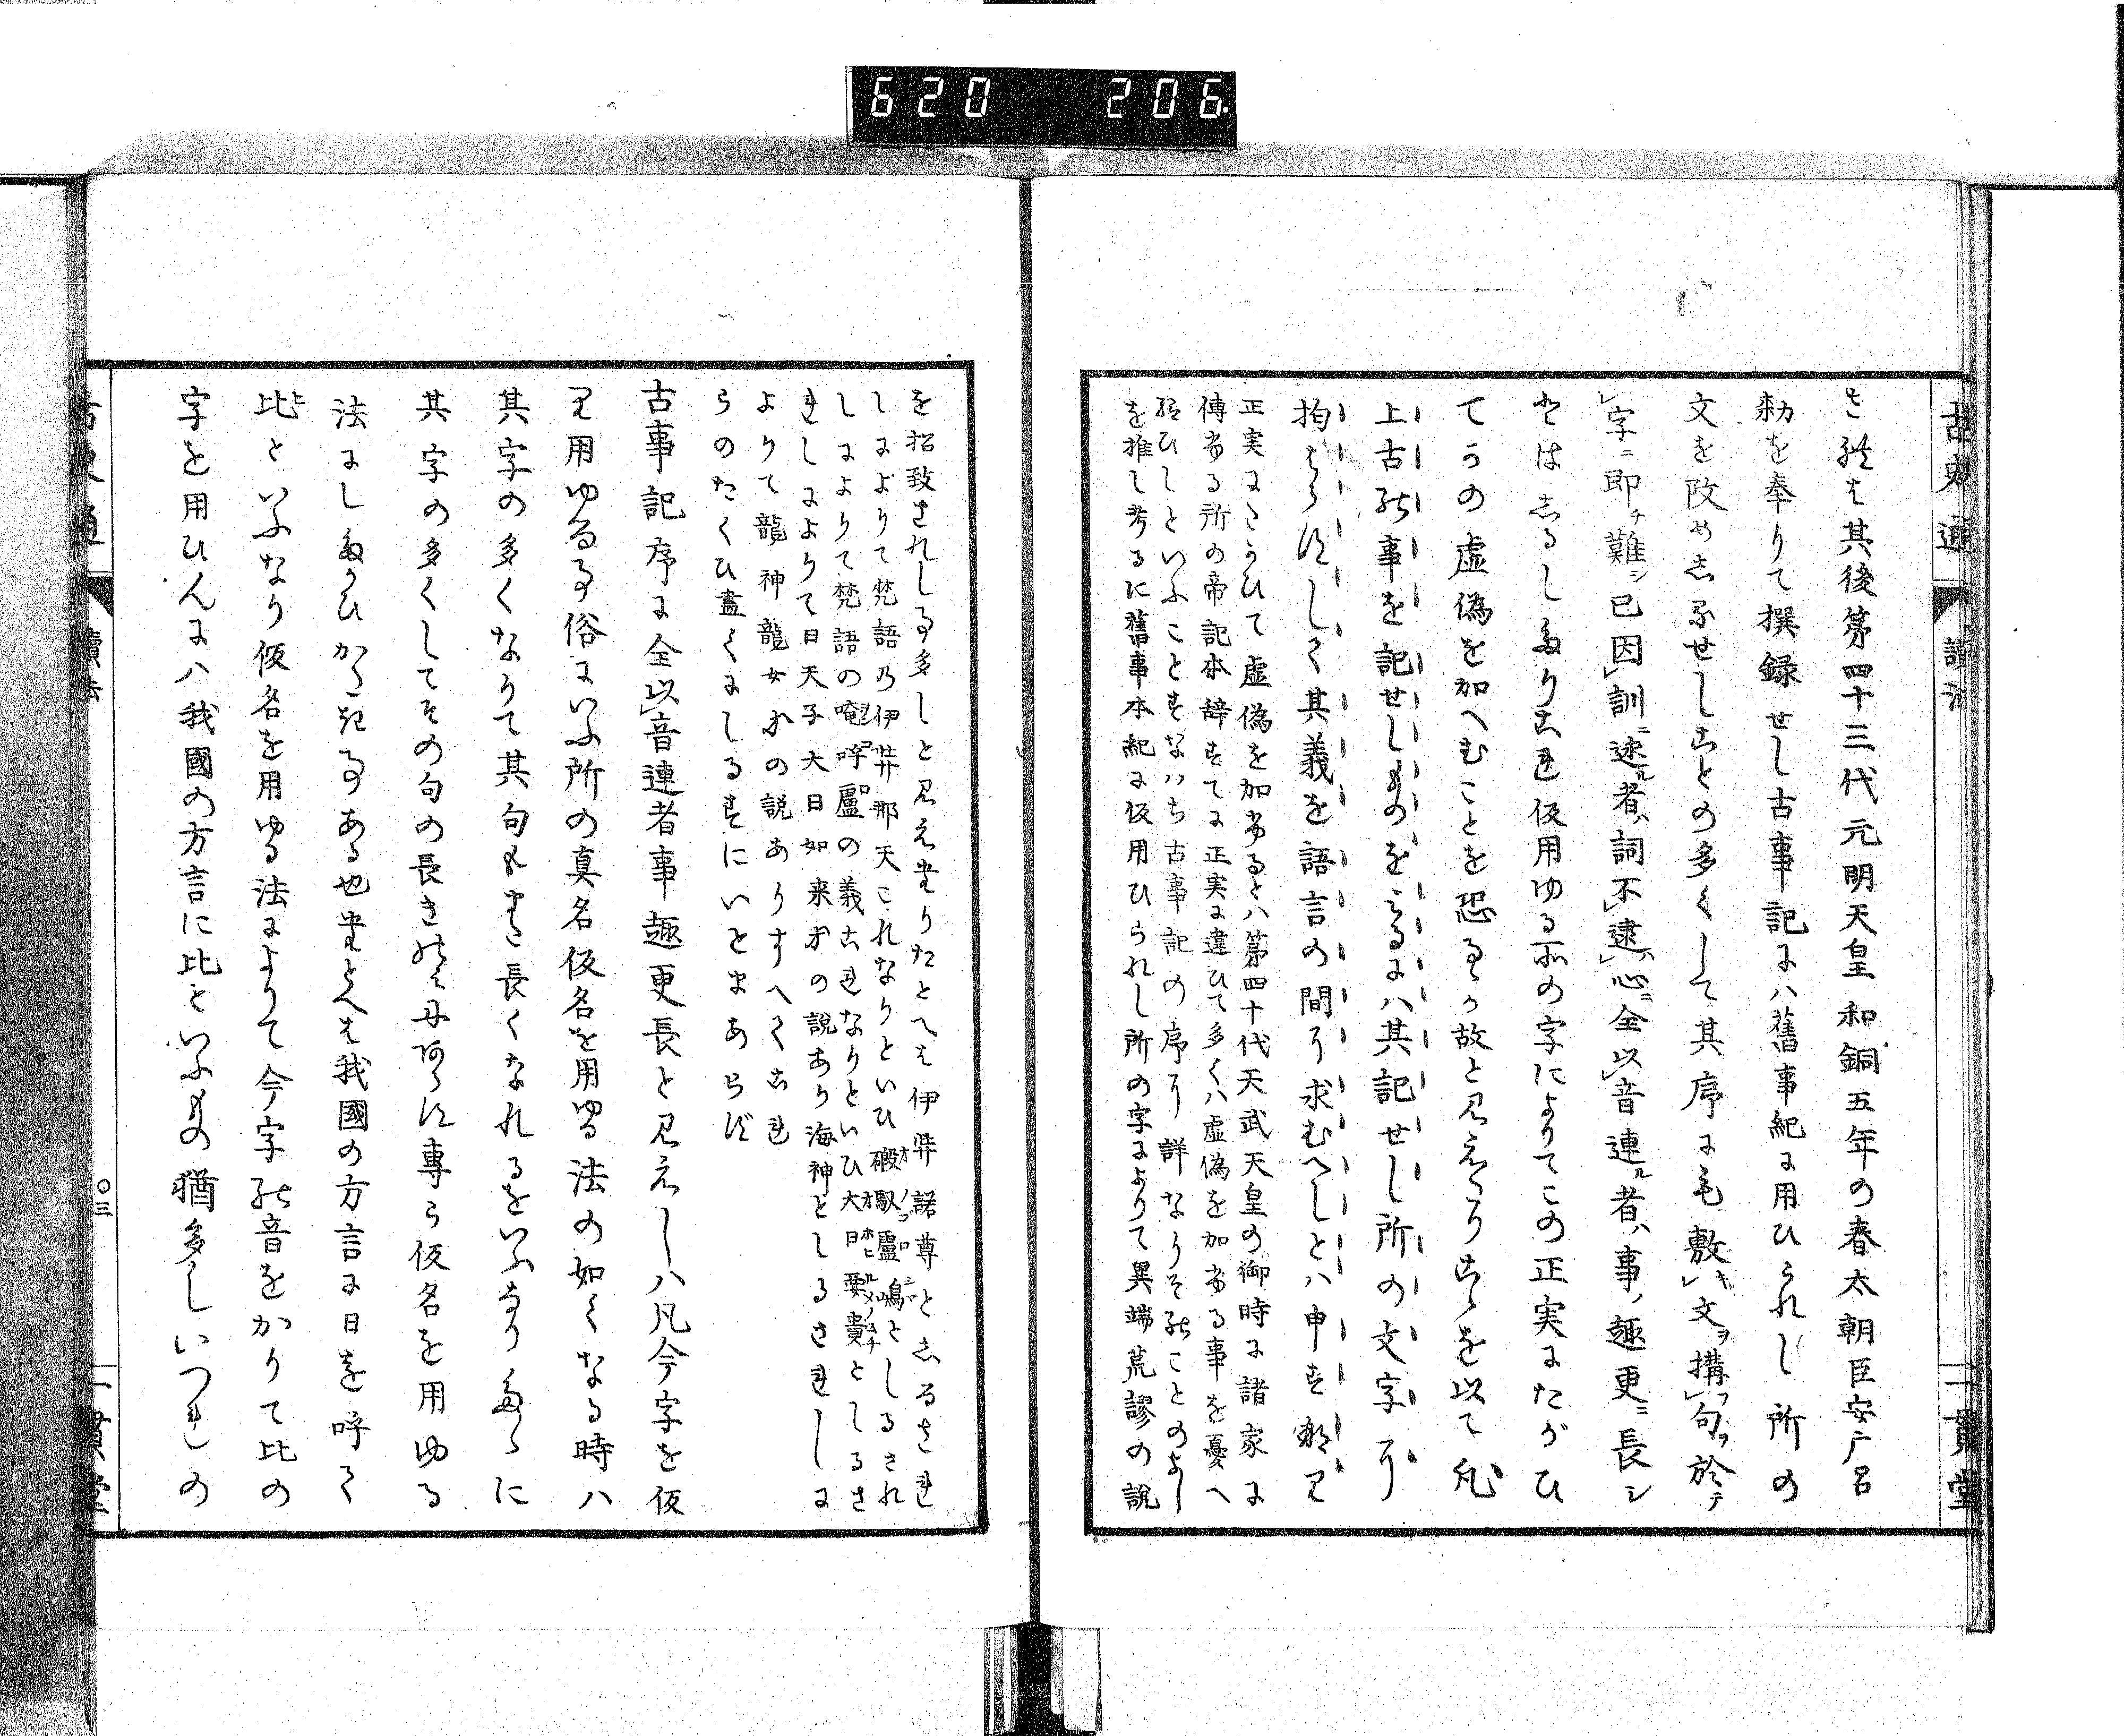 620 206.
古史通 讀法 一貫堂
され共其後第四十三代元明天皇和銅五年の春太朝臣安广呂
勅を奉りて撰録せし古事記にハ舊事紀に用ひられし所の
文を改めしるせしことの多くして其序にも敷文ヲ構句ヲ於テ
字ニ即チ難シ已因訓ニ述ル者ハ詞不逮心ニ全以音連ル者ハ事ノ趣更ニ長シ
とはしるしたりこれ仮用ゆる所の字によりてこの正実にたがひ
てかの虚偽を加へむことを恐るゝか故と見えたりこゝを以て凡
上古の事を記せしものをみるにハ其記せし所の文字に
拘はらすして其義を語言の間に求むへしとハ申す
正実にたかひて虚偽を加ふるとハ第四十代天武天皇の御時に諸家に
傳ふる所の帝記本辞すてに正実に違ひて多くハ虚偽を加ふる事を憂へ
給ひしといふことすなハち古事記の序に詳なりそのことのよし
を推し考るに舊事本紀に仮用ひられし所の字によりて異端荒謬の説
を招致されし事多しと見えたりたとへは伊弉諾尊としるされ
しによりて梵語乃伊弉那天これなりといひ磤馭盧嶋としるされ
しによりて梵語の唵呼盧の義これなりといひ大日孁貴としるさ
れしによりて日天子大日如来ホの説あり海神としるされしに
よりて龍神龍女ホの説ありすへてこれ
らのたくひ盡くにしるすにいとまあらず
古事記序に全以音連者事趣更長と見えしハ凡今字を仮
て用ゆる事俗にいふ所の真名仮名を用ゆる法の如くなる時ハ
其字の多くなりて其句もまた長くなれるをいふなりたゝに
其字の多くしてその句の長きのミにあらす専ら仮名を用ゆる
法にしたかひかたき事ある也たとへは我國の方言に日を呼て
比といふなり仮名を用ゆる法によりて今字の音をかりて比の
字を用ひんにハ我國の方言に比といふもの猶多しいつれの
古史通 讀法 〇三 一貫堂